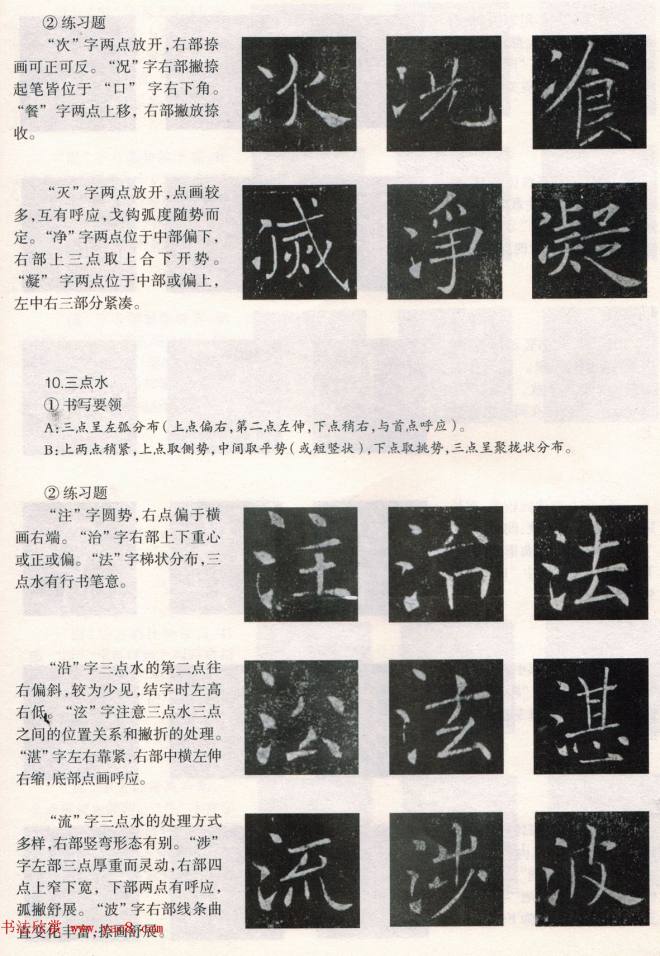 ② 练习题
“次”字两点放开,右部捺
画可正可反。“况”字右部撇捺
起笔皆位于“口”字右下角。
“餐”字两点上移,右部撇放捺
收。
次 况 飡
“灭”字两点放开,点画较
多,互有呼应,戈钩弧度随势而
定。“净”字两点位于中部偏下,
右部上三点取上合下开势。
“凝”字两点位于中部或偏上,
左中右三部分紧凑。
滅 淨 凝
10.三点水
① 书写要领
A:三点呈左弧分布(上点偏右,第二点左伸,下点稍右,与首点呼应)。
B:上两点稍紧,上点取侧势,中间取平势(或短竖状),下点取挑势,三点呈聚拢状分布。
② 练习题
“注”字圆势,右点偏于横
画右端。“治”字右部上下重心
或正或偏。“法”字梯状分布,三
点水有行书笔意。
注 治 法
“沿”字三点水的第二点往
右偏斜,较为少见,结字时左高
右低。“泫”字注意三点水三点
之间的位置关系和撇折的处理。
“湛”字左右靠紧,右部中横左伸
右缩,底部点画呼应。
沿 泫 湛
“流”字三点水的处理方式
多样,右部竖弯形态有别。“涉”
字左部三点厚重而灵动,右部四
点上窄下宽,下部两点有呼应,
弧撇舒展。“波”字右部线条曲
直变化丰富,捺画舒展。
流 涉 波
书法欣赏 www.yac8.com